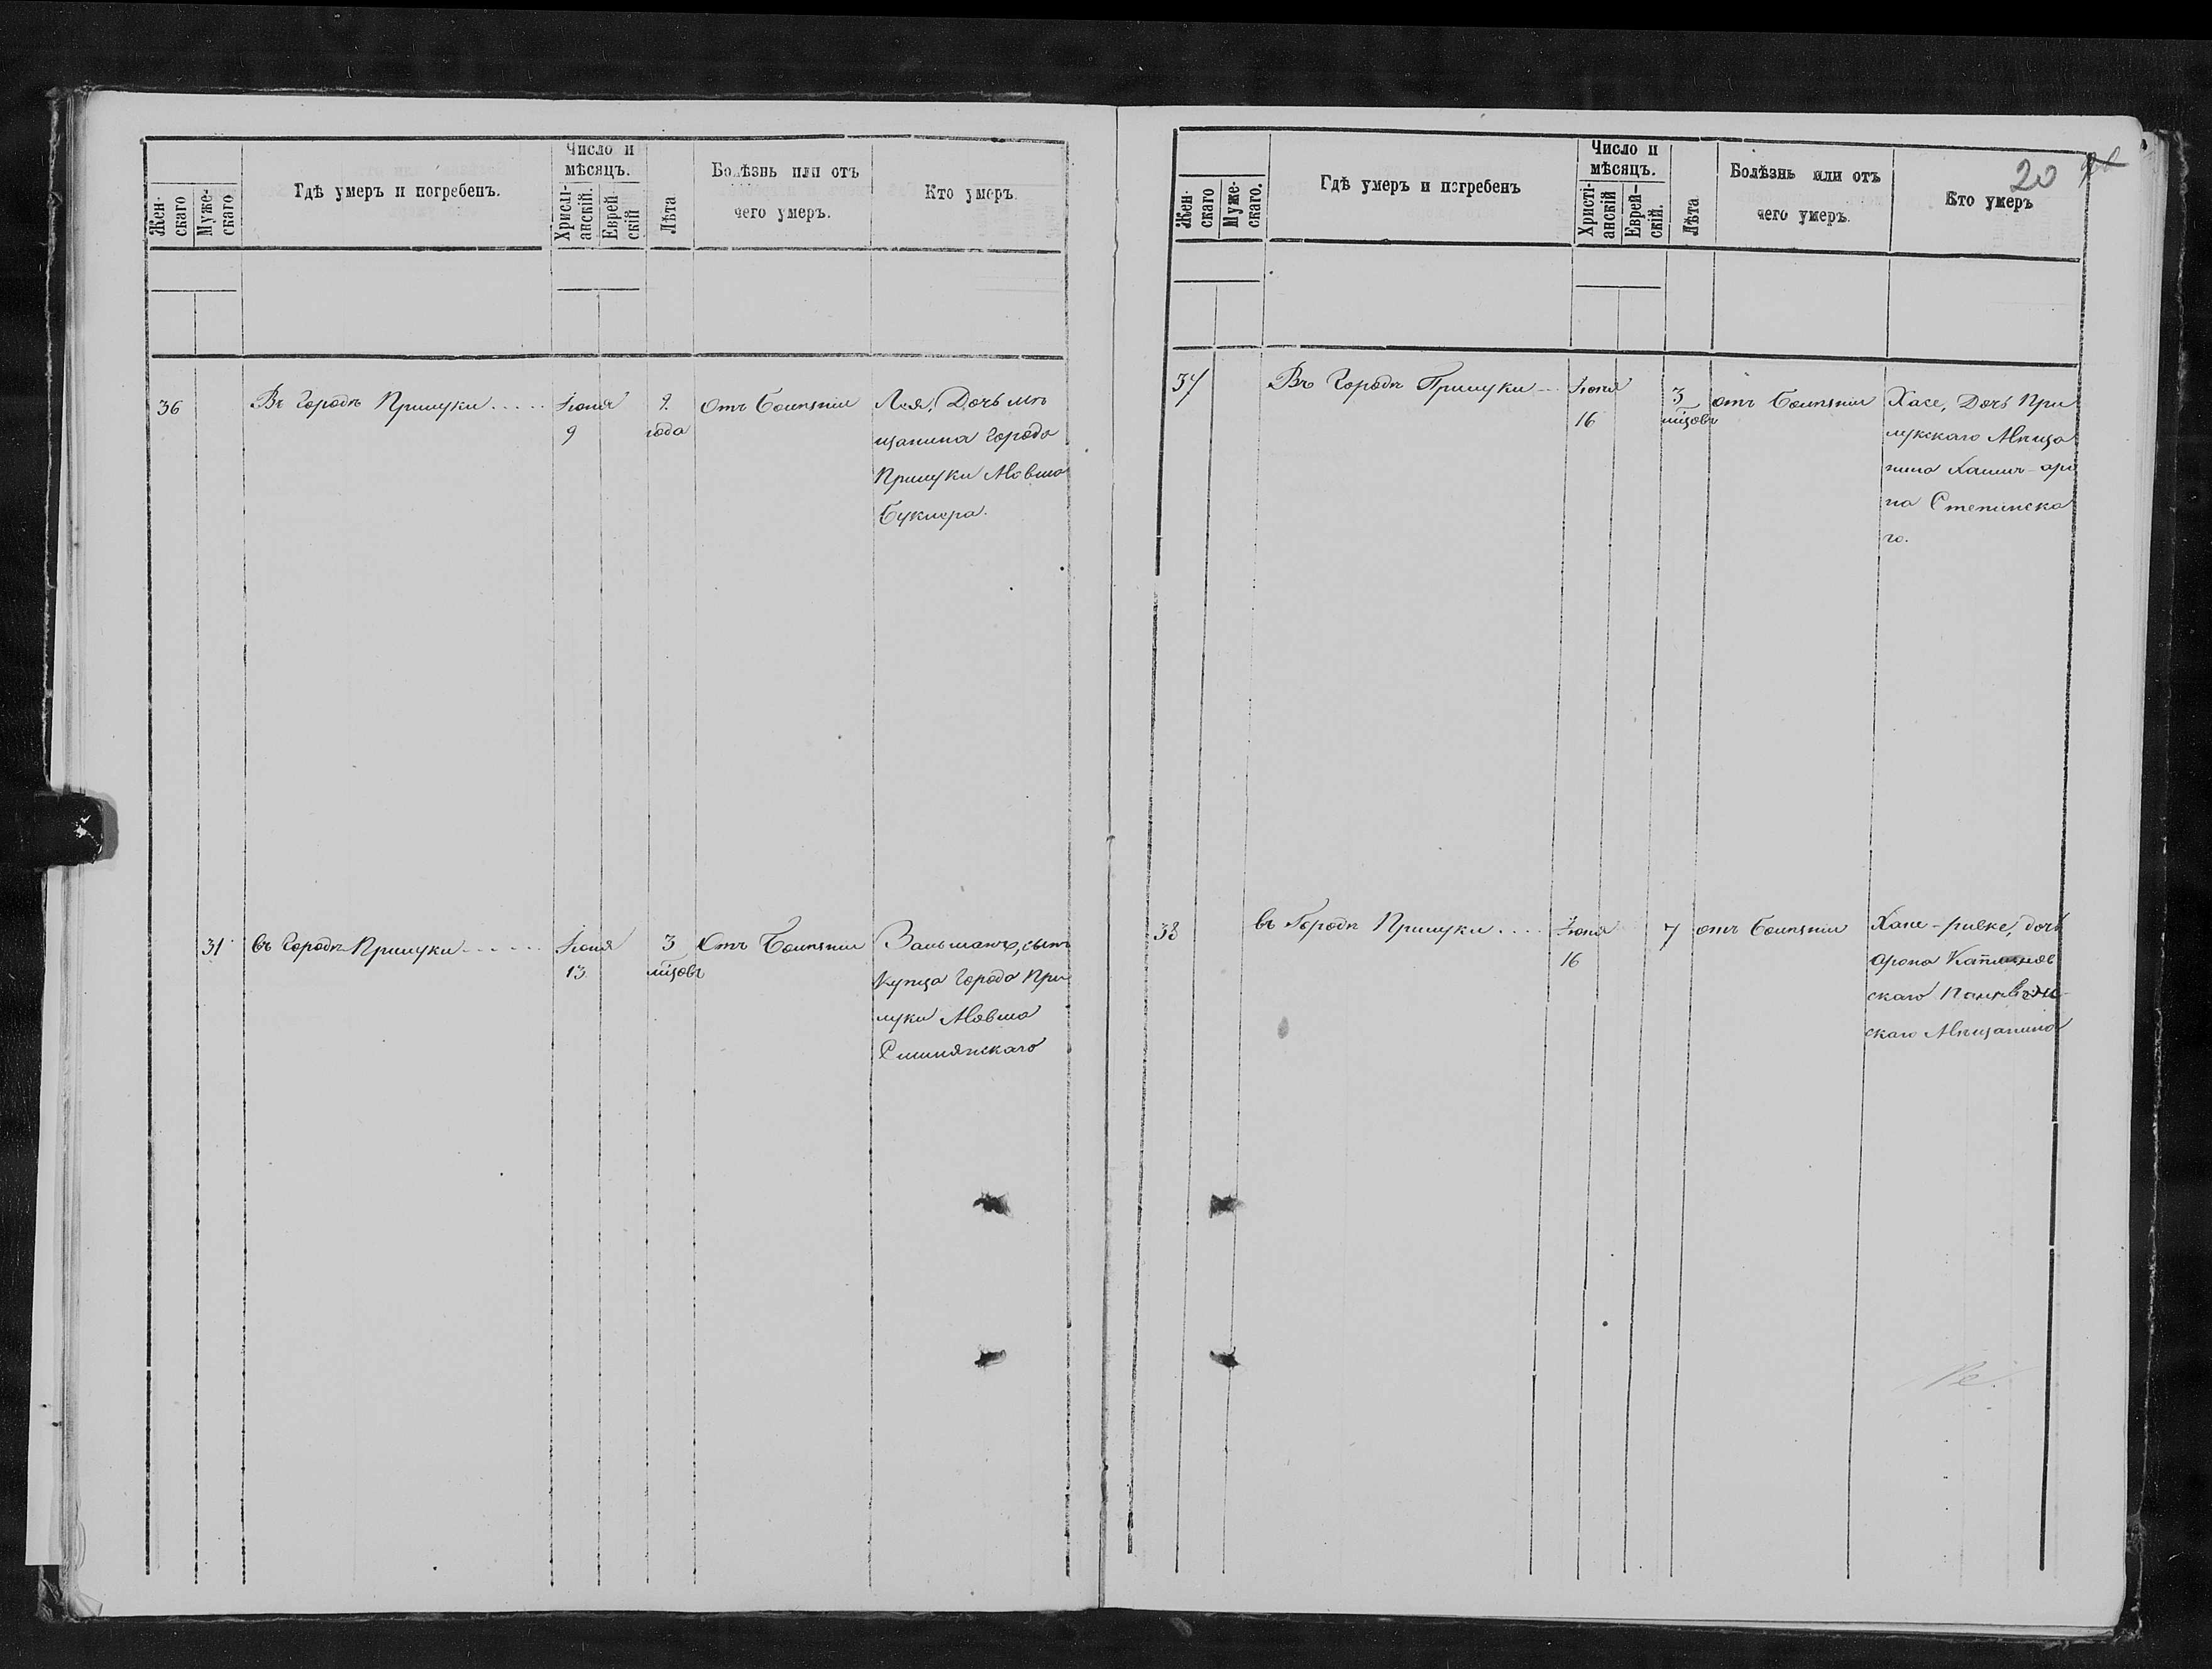 Жен-
скаго
Муже-
скаго
Гдѣ умеръ и погребенъ.
Число и
мѣсяцъ.
Христі-
анскій.
Еврей-
скій
Лѣта
Болѣзнь или отъ
чего умеръ.
Кто умеръ.
36
Въ городѣ Прилуки.....
Іюня
9
2.
года
Отъ болѣзни
Лея, Дочь мѣ
щанина города
Прилуки Мовша
Буклера.
31
въ городѣ Прилуки------
Іюня
13
3
місяцовъ
Отъ болѣзни
сынъ
Купца города При
луки Мовша
Жен-
скаго
Муже-
скаго.
Гдѣ умеръ и погребенъ
Число и
мѣсяцъ.
Христі-
анскій
Еврей-
скій.
Лѣта
Болѣзнь или отъ
чего умеръ.
Кто умеръ
20
37
Въ городѣ Прилуки---
Іюня
16
3
міцовъ
отъ болѣзни
Хасе, Дочь При
лукскаго Мѣща
нина Хаимъ-аро
на Степинска
го.
38
въ Городѣ Прилуки....
Іюня
16
7
отъ болѣзни
Хане-ривке, дочь
Арона
скаго
скаго Мѣщанина